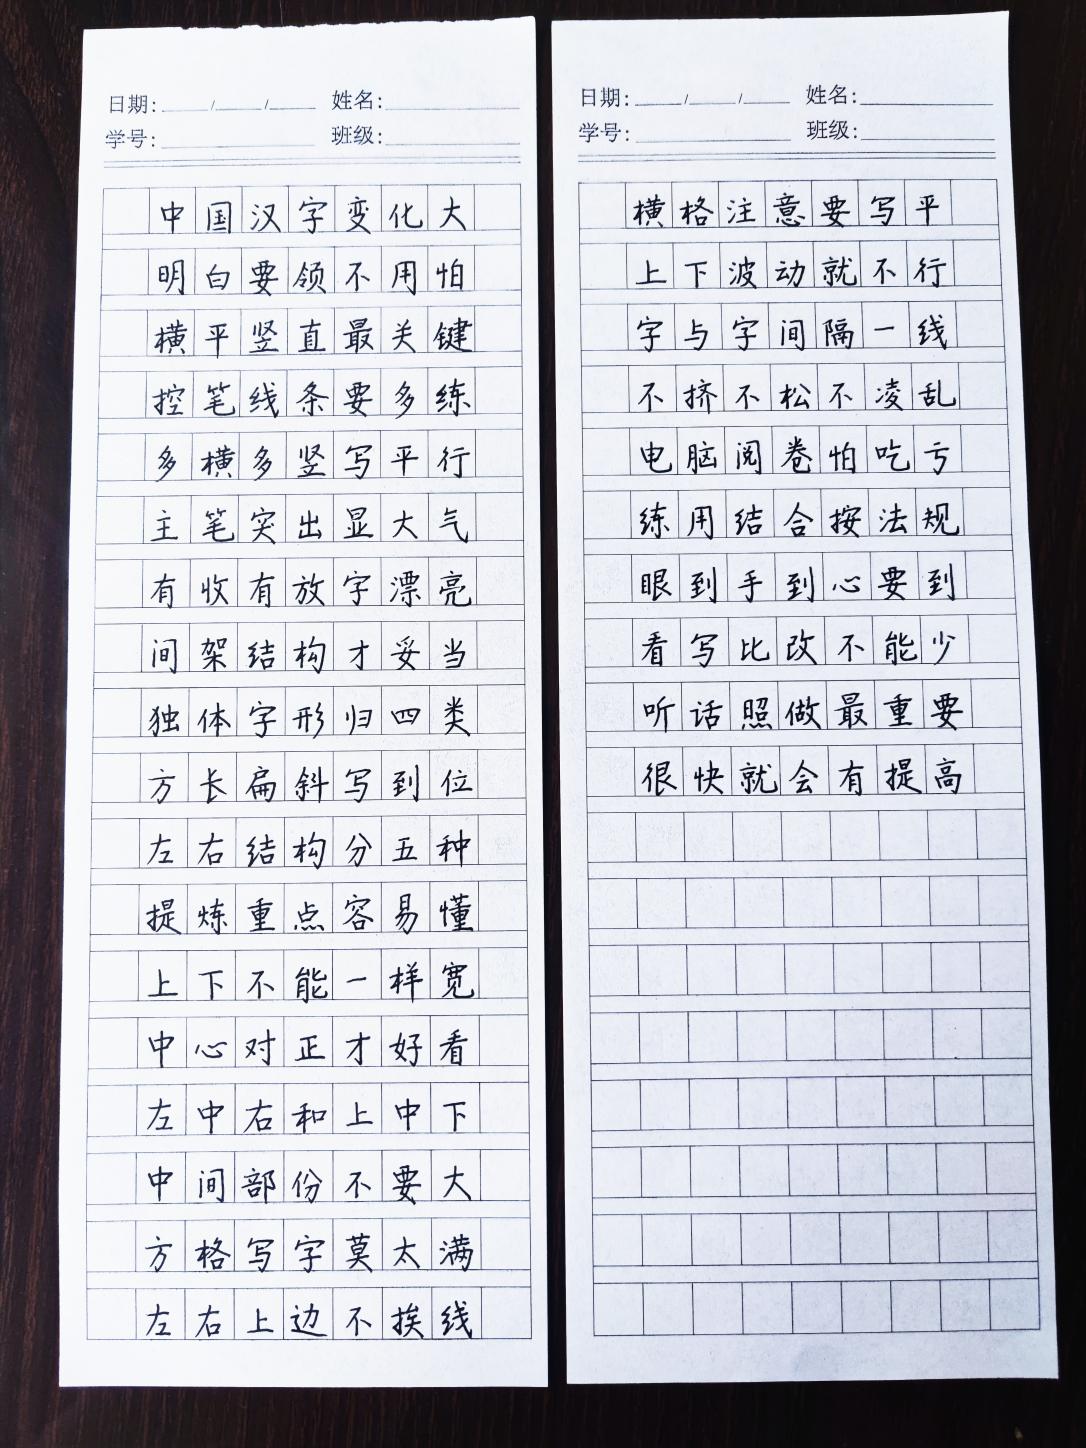 日期:____/____/____ 姓名:____
学号:____ 班级:____
中国汉字变化大
明白要领不用怕
横平竖直最关键
控笔线条要多练
多横多竖写平行
主笔突出显大气
有收有放字漂亮
间架结构才妥当
独体字形归四类
方长扁斜写到位
左右结构分五种
提炼重点容易懂
上下不能一样宽
中心对正才好看
左中右和上中下
中间部份不要大
方格写字莫太满
左右上边不挨线
日期:____/____/____ 姓名:____
学号:____ 班级:____
横格注意要写平
上下波动就不行
字与字间隔一线
不挤不松不凌乱
电脑阅卷怕吃亏
练用结合按法规
眼到手到心要到
看写比改不能少
听话照做最重要
很快就会有提高